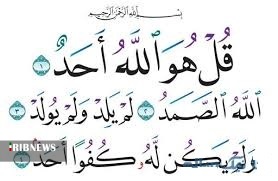 بِسْمِ اللَّهِ الرَّحْمَنِ الرَّحِيمِ
قُلْ هُوَ ٱللَّهُ أَحَدٌ ١
ٱللَّهُ ٱلصَّمَدُ ٢ لَمْ يَلِدْ وَلَمْ يُولَدْ ٣
وَلَمْ يَكُن لَّهُۥ كُفُوًا أَحَدٌۢ ٤
IRIBNEWS